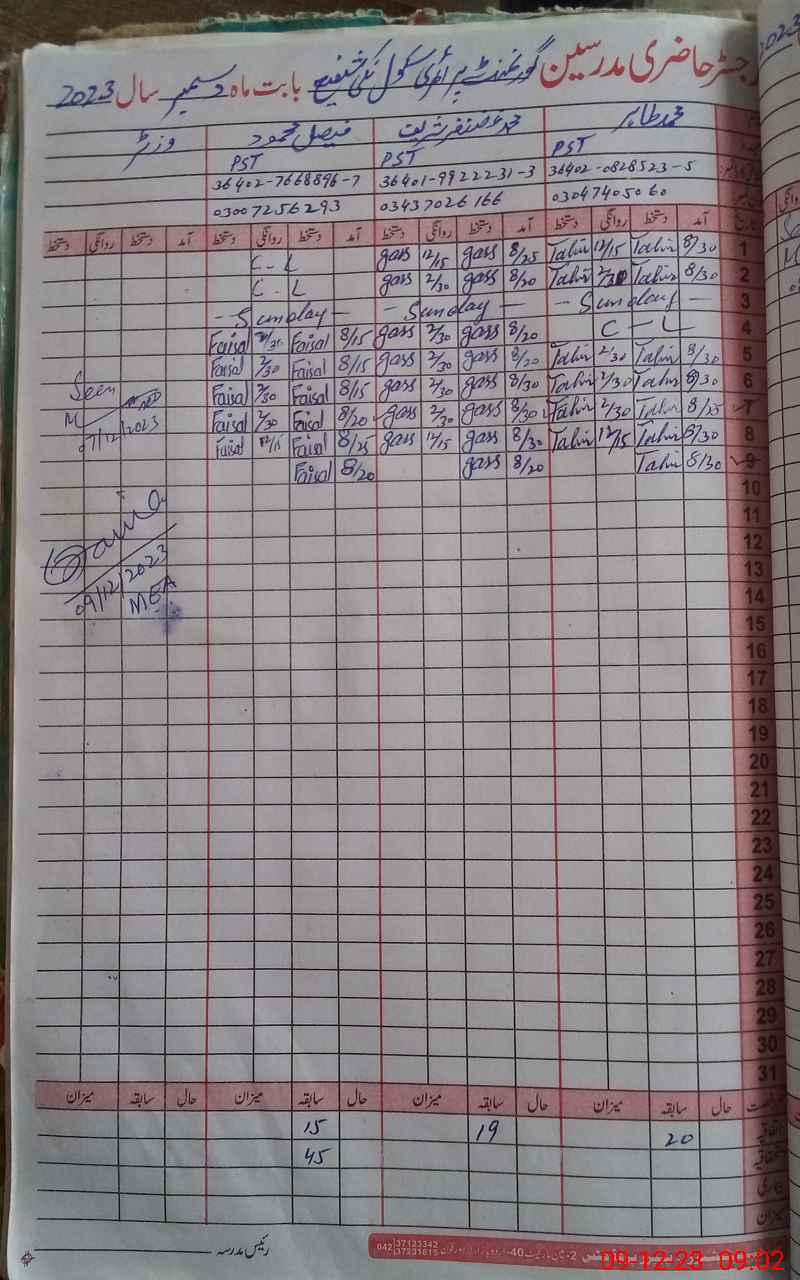 رجسٹر حاضری مدرسین گورنمنٹ پرائمری سکول نکی شفیع بابت ماہ دسمبر سال 2023
محمد طاہر محمد غضنفر شریف فیصل محمود وزٹر
PST PST PST
36402-0828523-5 36401-9922231-3 36402-7668896-7
03047405060 03437026166 03007256293
آمد دستخط روانگی دستخط آمد دستخط روانگی دستخط آمد دستخط روانگی دستخط آمد دستخط روانگی دستخط
1 8/30 Tahir 12/15 Tahir 8/25 gass 12/15 gass C-L
2 8/30 Tahir 2/30 Tahir 8/20 gass 2/30 gass C-L
3 - Sunday - - Sunday - - Sunday -
4 C-L 8/20 gass 2/30 gass 8/15 Faisal Faisal
5 8/30 Tahir 2/30 Tahir 8/20 gass 2/30 gass 8/15 Faisal 2/30 Faisal
6 8/30 Tahir 2/30 Tahir 8/30 gass 2/30 gass 8/15 Faisal 2/30 Faisal Seen
7 8/25 Tahir 2/30 Tahir 8/30 gass 2/30 gass 8/20 Faisal 2/30 Faisal
07/12/2023
8 8/30 Tahir 12/15 Tahir 8/30 gass 12/15 gass 8/25 Faisal 12/15 Faisal
9 8/30 Tahir 8/20 gass 8/20 Faisal
10
11
12
13
09/12/2023
14
MEA
15
16
17
18
19
20
21
22
23
24
25
26
27
28
29
30
31
حال سابقہ میزان حال سابقہ میزان حال سابقہ میزان حال سابقہ میزان
20 19 15
45
بیماری
میزان
رئیس مدرسہ
042 37123342
37231615
09-12-23 09:02